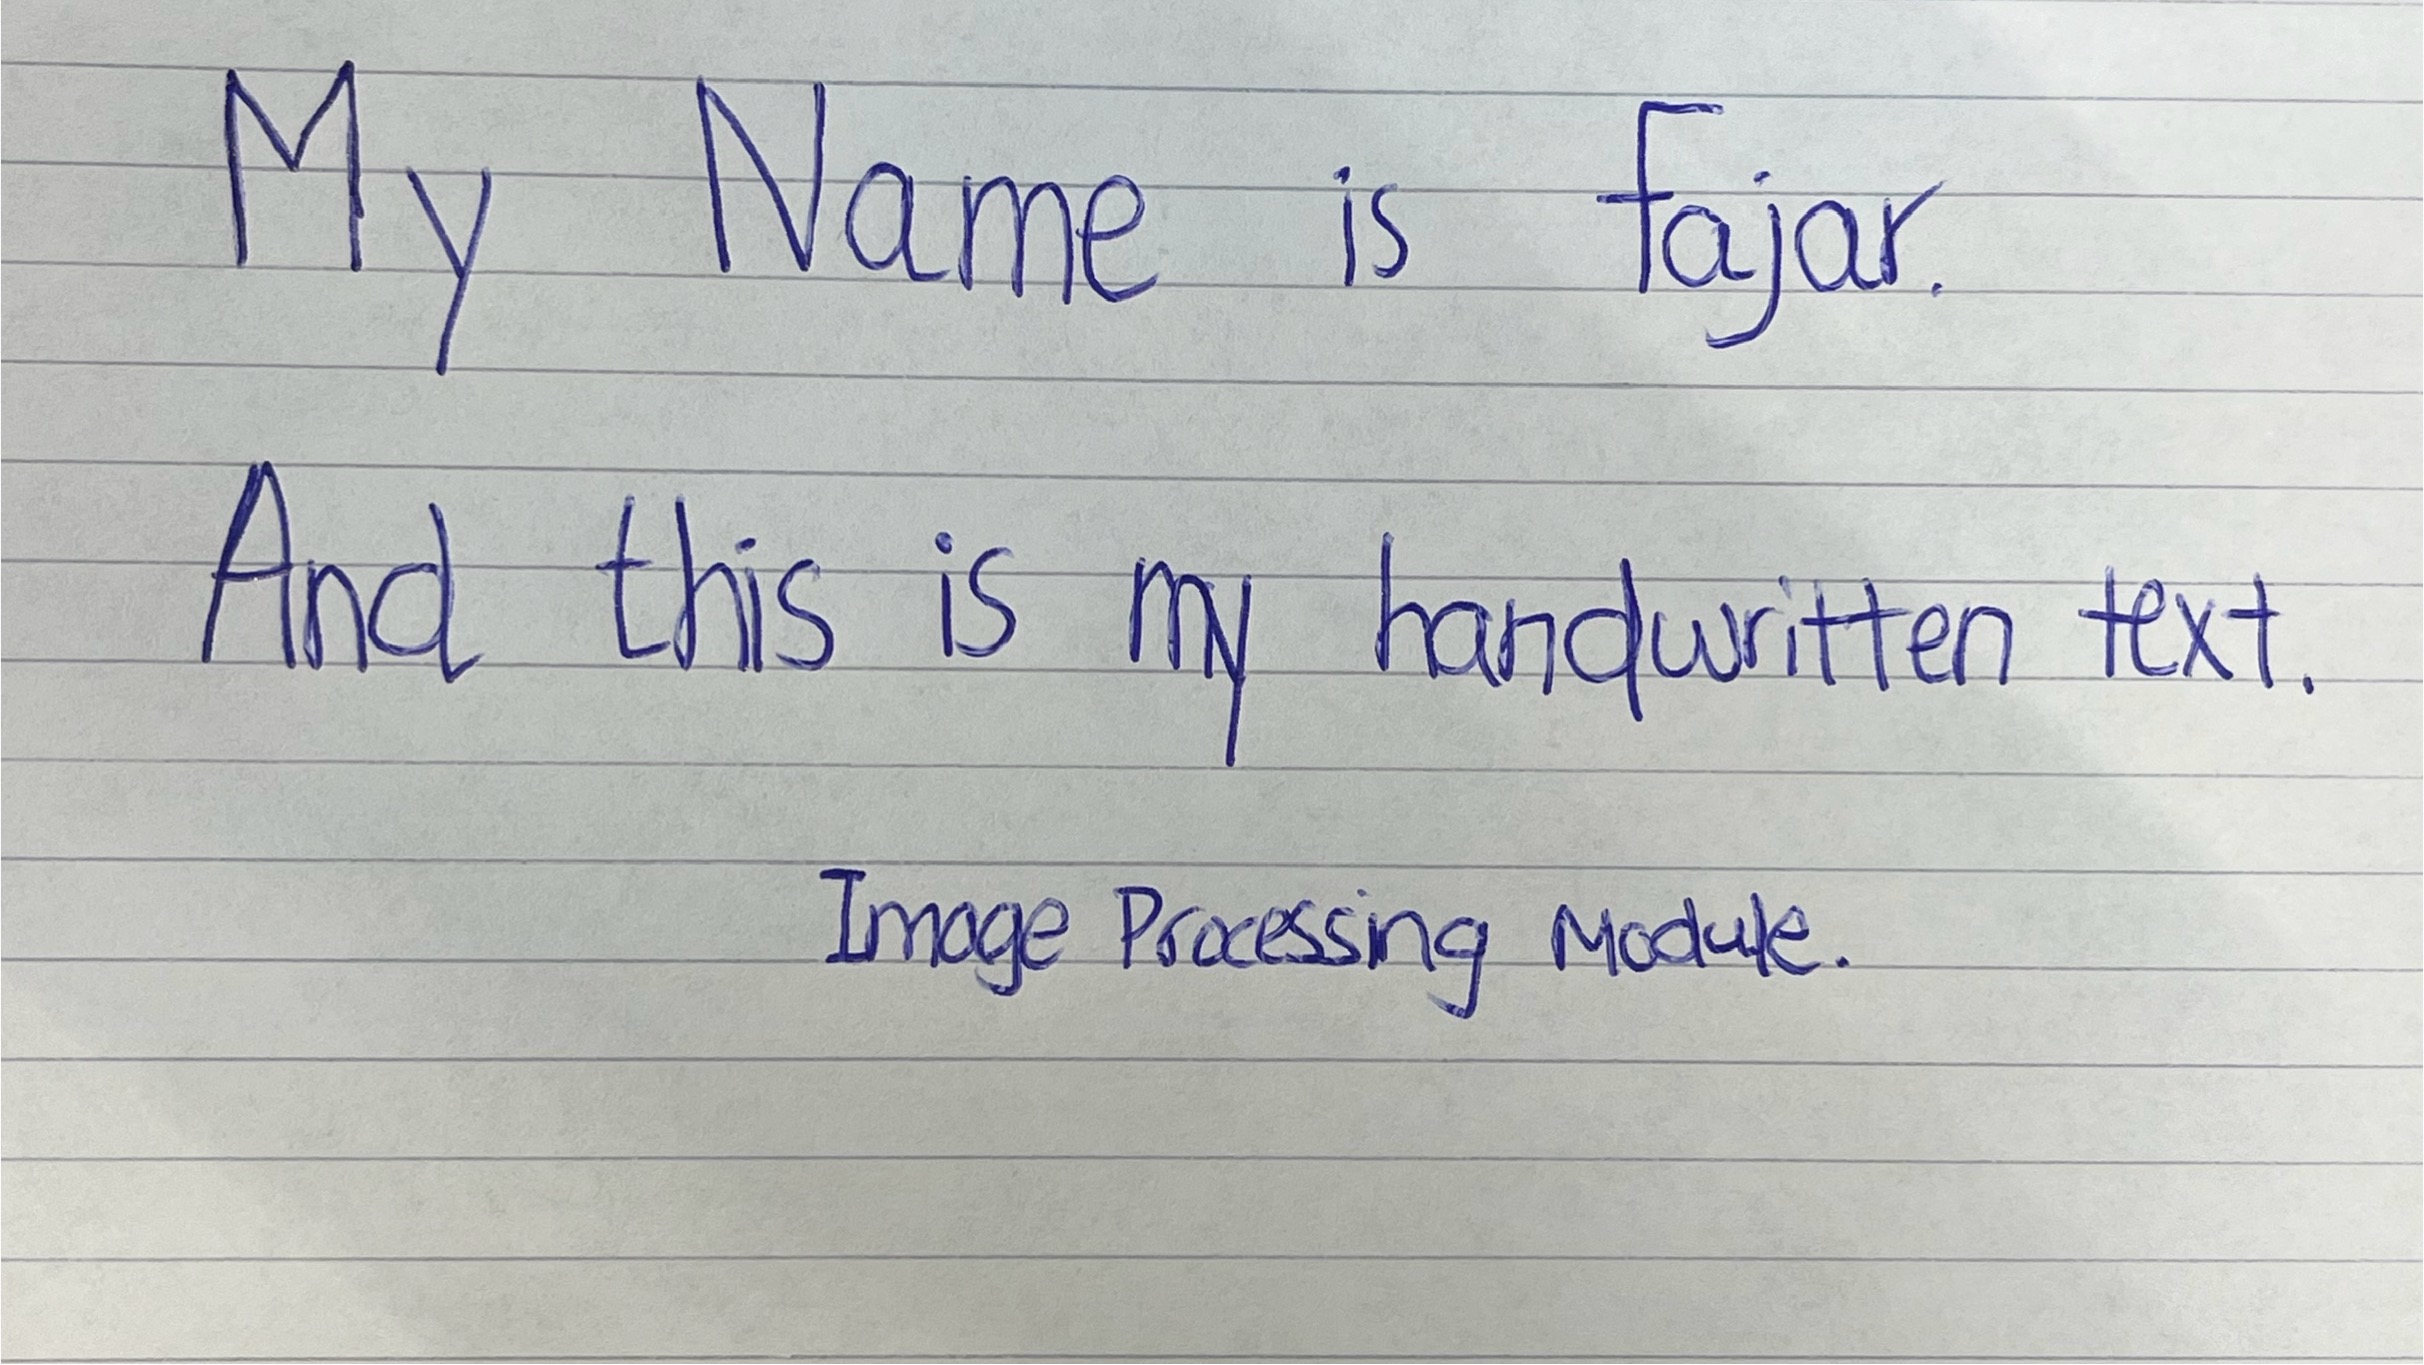 My Name is Fajar.
And this is my handwritten text.
Image Processing Module.